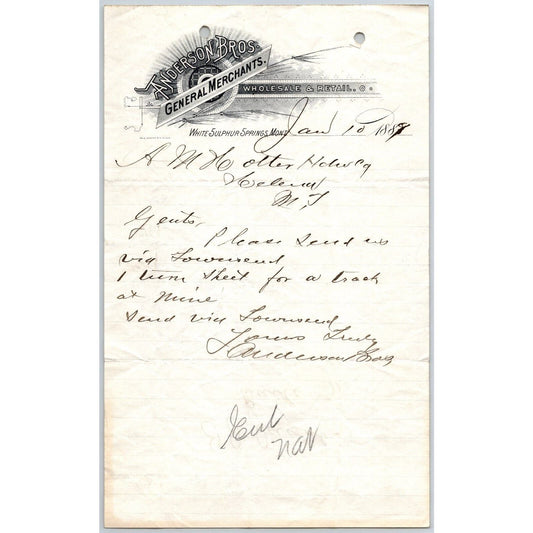 ANDERSON BROS.
GENERAL MERCHANTS.
WHOLESALE & RETAIL.
WHITE SULPHUR SPRINGS, MONT. Jan 10 1887
A M Holter Hdw Co
Helena
M.T.
Gents,
Please send us
via Townsend
1 turn sheet for a track
at mine
Send via Townsend
Yours Truly
Anderson Bros